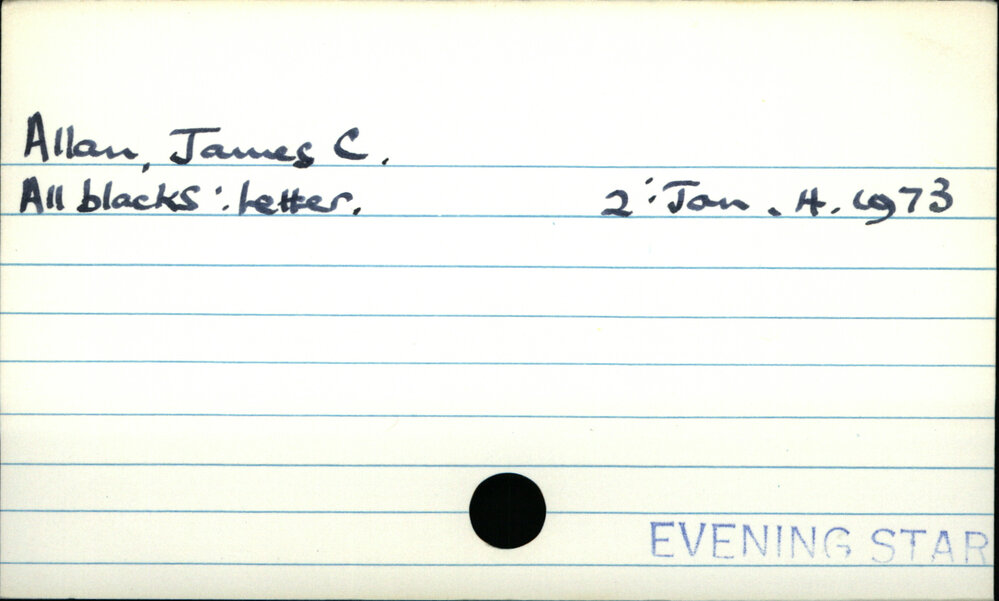 Allan, James C.
All blacks : Letter. 2 : Jan . 4. 1973
EVENING STAR